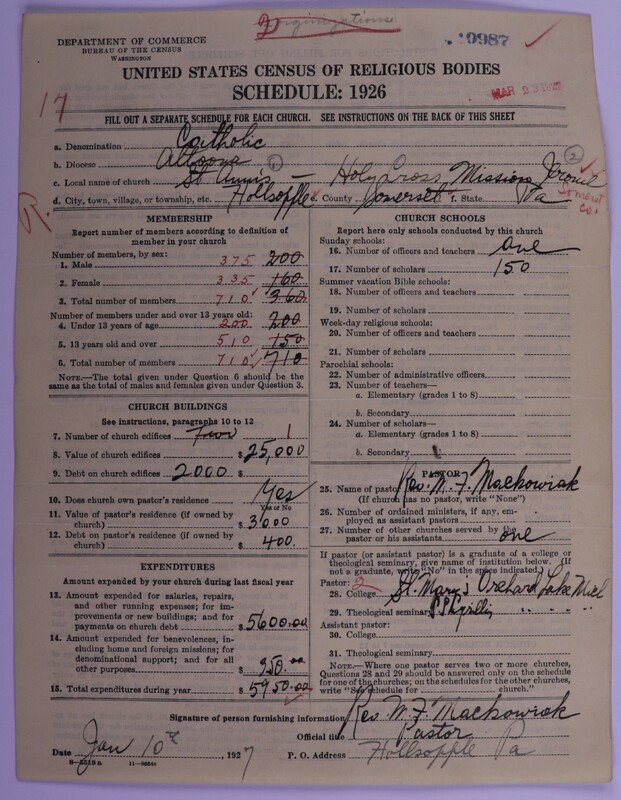 2 Organizations
10987
DEPARTMENT OF COMMERCE
BUREAU OF THE CENSUS
WASHINGTON
UNITED STATES CENSUS OF RELIGIOUS BODIES
SCHEDULE: 1926
MAR 22
17
FILL OUT A SEPARATE SCHEDULE FOR EACH CHURCH. SEE INSTRUCTIONS ON THE BACK OF THIS SHEET
a. Denomination Catholic
b. Diocese Altoona 1 2
c. Local name of church St Ann's – Holy Cross Mission Jerome
d. City, town, village, or township, etc. Hollsopple e. County Somerset f. State Pa
Somerset Co.
R.
MEMBERSHIP
Report number of members according to definition of member in your church
Number of members, by sex:
1. Male 375 200
2. Female 335 160
3. Total number of members 710 360
Number of members under and over 13 years old:
4. Under 13 years of age 200 200
5. 13 years old and over 510 150
6. Total number of members 710 710
NOTE.—The total given under Question 6 should be the same as the total of males and females given under Question 3.
CHURCH BUILDINGS
See instructions, paragraphs 10 to 12
7. Number of church edifices Two 1
8. Value of church edifices $ 25,000
9. Debt on church edifices 2000 $
10. Does church own pastor's residence Yes
Yes or No
11. Value of pastor's residence (if owned by church) $ 3000
12. Debt on pastor's residence (if owned by church) $ 400.
EXPENDITURES
Amount expended by your church during last fiscal year
13. Amount expended for salaries, repairs, and other running expenses; for improvements or new buildings; and for payments on church debt $ 5600.00
14. Amount expended for benevolences, including home and foreign missions; for denominational support; and for all other purposes $ 350.00
15. Total expenditures during year $ 5950.00
CHURCH SCHOOLS
Report here only schools conducted by this church
Sunday schools:
16. Number of officers and teachers One
17. Number of scholars 150
Summer vacation Bible schools:
18. Number of officers and teachers
19. Number of scholars
Week-day religious schools:
20. Number of officers and teachers
21. Number of scholars
Parochial schools:
22. Number of administrative officers
23. Number of teachers—
a. Elementary (grades 1 to 8)
b. Secondary
24. Number of scholars—
a. Elementary (grades 1 to 8)
b. Secondary
PASTOR
25. Name of pastor Rev. W. F. Mackowiak
(If church has no pastor, write "None")
26. Number of ordained ministers, if any, employed as assistant pastors
27. Number of other churches served by the pastor or his assistants one
If pastor (or assistant pastor) is a graduate of a college or theological seminary, give name of institution below. (If not a graduate, write "No" in the space indicated.)
Pastor: 2
28. College St. Mary's Orchard Lake Mich
29. Theological seminary " " " "
Assistant pastor:
30. College
31. Theological seminary
NOTE.—Where one pastor serves two or more churches, Questions 28 and 29 should be answered only on the schedule for one of the churches; on the schedules for other churches, write "See schedule for church."
Signature of person furnishing information Rev. W. F. Mackowiak
Official title Pastor
Date Jan 10th, 1927 P. O. Address Hollsopple Pa
8-5519a 11-